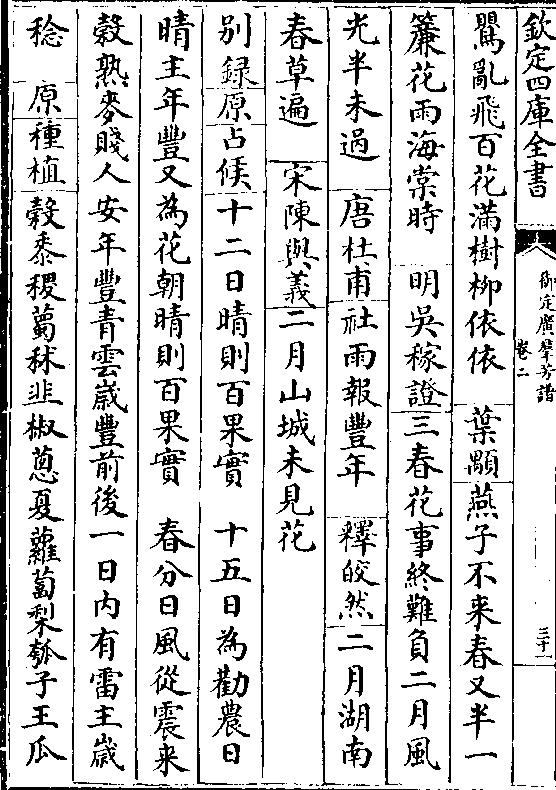 欽定四庫全書
御定廣羣芳譜
卷二
三十一
鸎亂飛百花滿樹柳依依　葉顒燕子不来春又半一
簾花雨海棠時　明吳稼證三春花事終難負二月風
光半未過　唐杜甫社雨報豐年　釋皎然二月湖南
春草遍　宋陳與義二月山城未見花
别録原占候十二日晴則百果實　十五日為勸農日
晴主年豐又為花朝晴則百果實　春分日風從震来
榖熟麥賤人安年豐青雲嵗豐前後一日内有雷主嵗
稔　原種植榖黍稷蔔秫韭椒蔥夏蘿蔔梨瓠子王瓜